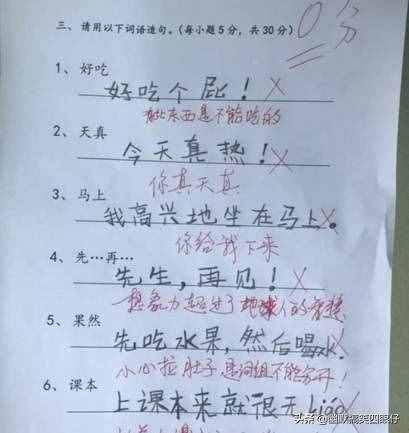 三、请用以下词语造句。(每小题5分，共30分)
0分
1、好吃
好吃个屁！
有些东西是不能吃的
2、天真
今天真热！
你真天真
3、马上
我高兴地坐在马上。
你给我下来
4、先…再…
先生，再见！
想象力超过了地球人的
5、果然
先吃水果，然后喝水。
小心拉肚子 是词组不能分开！
6、课本
上课本来就很无
头条 @幽默搞笑四眼仔